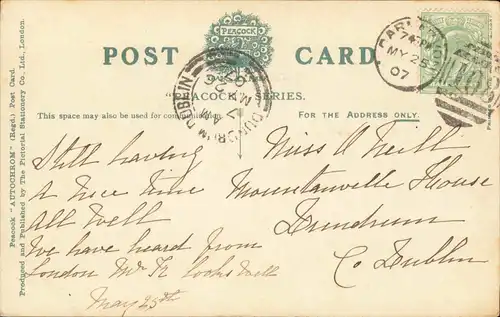 PEACOCK
POST CARD.
"PEACOCK" SERIES.
This space may also be used for
FOR THE ADDRESS ONLY.
Peacock "AUTOCHROM" (Regd.) Post Card.
Produced and Published by The Pictorial Stationery Co., Ltd., London.
MY 25
07
DUNDRUM DUBLIN
709
Still having
a nice time
All well
We have heard from
London Mr looks well
May 25th
Miss O'Neill
Mountanville House
Dundrum
Co Dublin